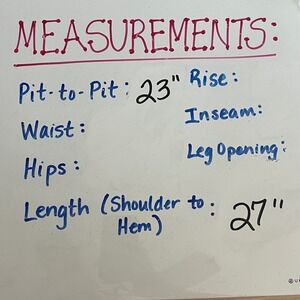 MEASUREMENTS:
Pit-to-Pit: 23"
Waist:
Hips:
Length (Shoulder to Hem): 27"
Rise:
Inseam:
Leg Opening: